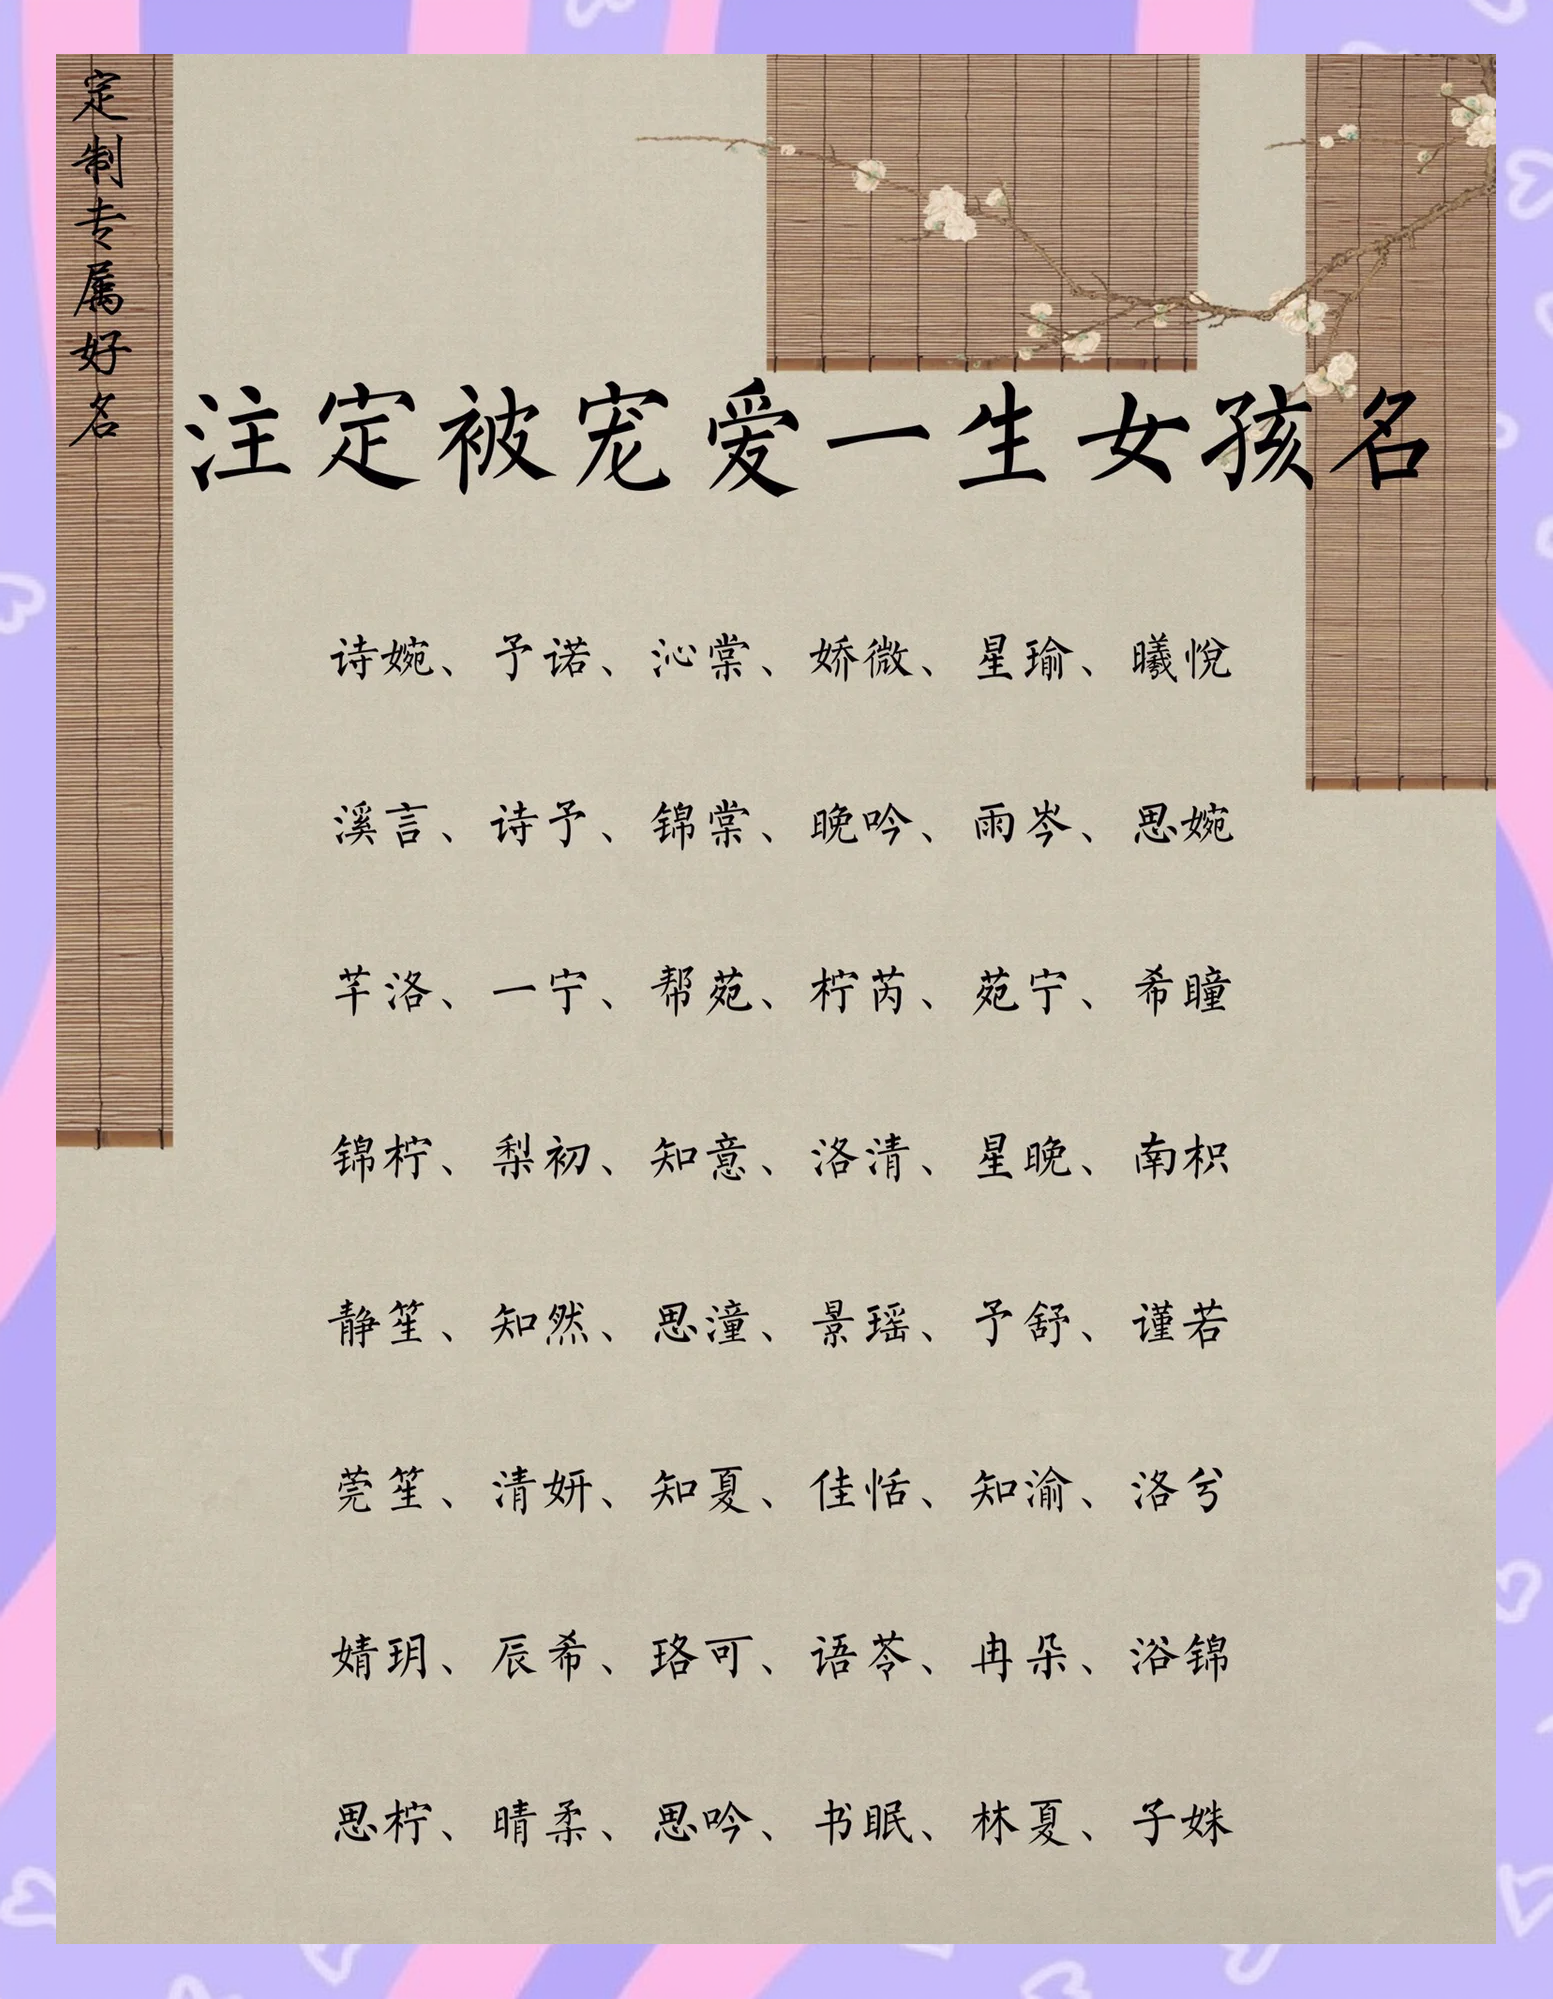 定制专属好名
注定被宠爱一生女孩名
诗婉、予诺、沁棠、娇微、星瑜、曦悦
溪言、诗予、锦棠、晚吟、雨岑、思婉
芊洛、一宁、帮苑、柠芮、苑宁、希瞳
锦柠、梨初、知意、洛清、星晚、南枳
静笙、知然、思潼、景瑶、予舒、谨若
莞笙、清妍、知夏、佳恬、知渝、洛兮
婧玥、辰希、珞可、语苓、冉朵、浴锦
思柠、晴柔、思吟、书眠、林夏、子姝